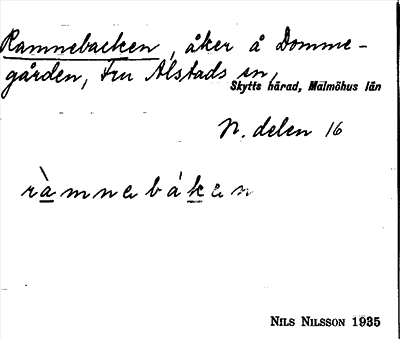 Ramnebacken, åker å Domme-
gården, Fru Alstads sn,
Skytts härad, Malmöhus län
N. delen 16
ràmnebákan
NILS NILSSON 1935